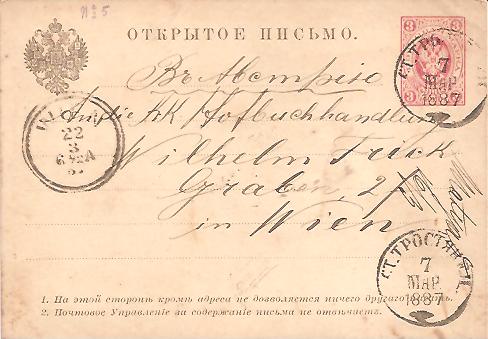 № 5
ОТКРЫТОЕ ПИСЬМО.
3 3
СТ. ТРО
7
МАР.
1887
Въ Австрію
An die k k Hofbuchhandlung
Wilhelm Frick
Graben, 27
in Wien
22
3
СТ. ТРОСТЯНЕЦ
7
МАР.
1887
1. На этой сторонѣ кромѣ адреса не дозволяется ничего другаго
2. Почтовое Управленіе за содержаніе письма не отвѣчаетъ.